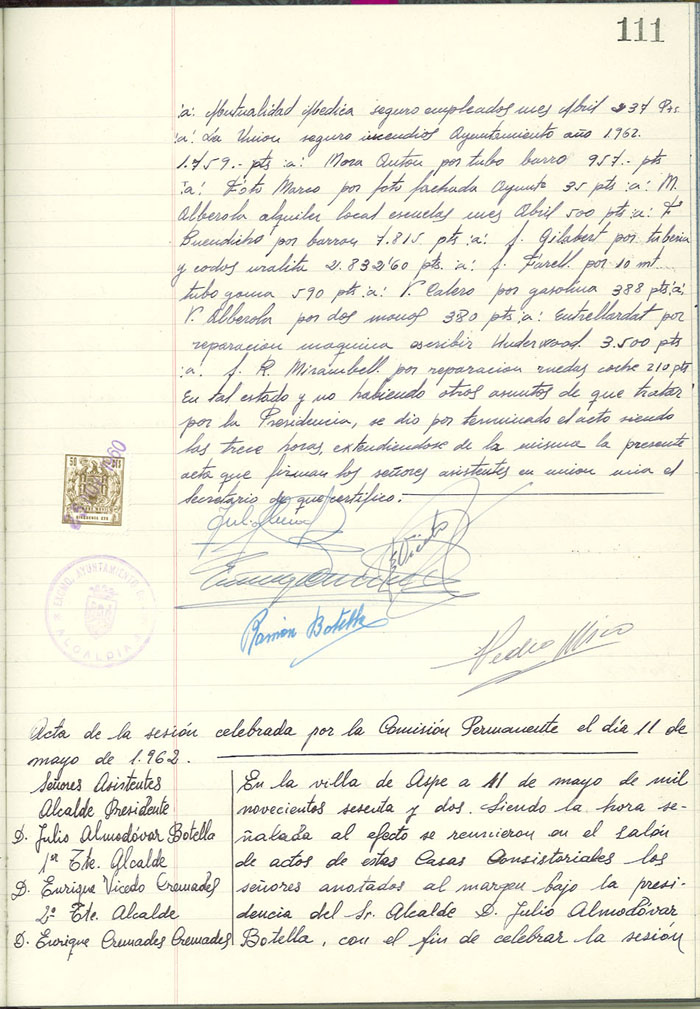 111
:a: Mutualidad Medica seguro empleados mes Abril 237 Pts
:a: La Union seguro incendios Ayuntamiento año 1962.
1.759.- pts :a: Mora Anton por tubo barro 957.- pts
:a: Foto Marco por foto fachada Ayunto 35 pts :a: M.
Alberola alquiler local escuelas mes Abril 500 pts :a: Fº
Puendicho por barrau 7.815 pts :a: J. Gilabert por tuberia
y codos uralita 2.832'60 pts :a: J. Farell. por 10 mt.
tubo goma 590 pts :a: V. Calero por gasolina 388 pts :a:
V. Alberola por dos monos 380 pts :a: Entrellardat por
reparacion maquina escribir Underwood 3.500 pts
:a. J. R. Mirambell por reparacion ruedas coche 210 pts
En tal estado y no habiendo otros asuntos de que tratar
por la Presidencia, se dio por terminado el acto siendo
las trece horas, extendiendose de la misma la presente
acta que firman los señores asistentes en union mia el
secretario de que certifico.-
50 CTS
E Vicedo
Ramón Botella
Pedro Mico
EXCMO. AYUNTAMIENTO
ALCALDIA
Acta de la sesión celebrada por la Comisión Permanente el día 11 de
mayo de 1.962.
Señores Asistentes
Alcalde Presidente
D. Julio Almodóvar Botella
1er Tte. Alcalde
D. Enrique Vicedo Cremades
2º Tte. Alcalde
D. Enrique Cremades Cremades
En la villa de Aspe a 11 de mayo de mil
novecientos sesenta y dos. Siendo la hora se-
ñalada al efecto se reunieron en el salón
de actos de estas Casas Consistoriales los
señores anotados al margen bajo la presi-
dencia del Sr. Alcalde D. Julio Almodóvar
Botella, con el fin de celebrar la sesión